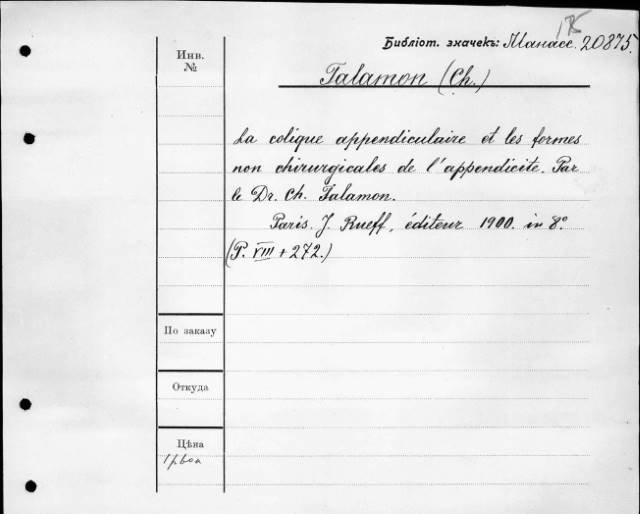 Библіот. значекъ: Манасс. 20875.
Инв.
№
Talamon (Ch.)
La colique appendiculaire et les formes
non chirurgicales de l'appendicite. Par
le Dr. Ch. Talamon.
Paris. J. Rueff, éditeur 1900. in 8°.
(P. VIII + 272.)
По заказу
Откуда
Цѣна